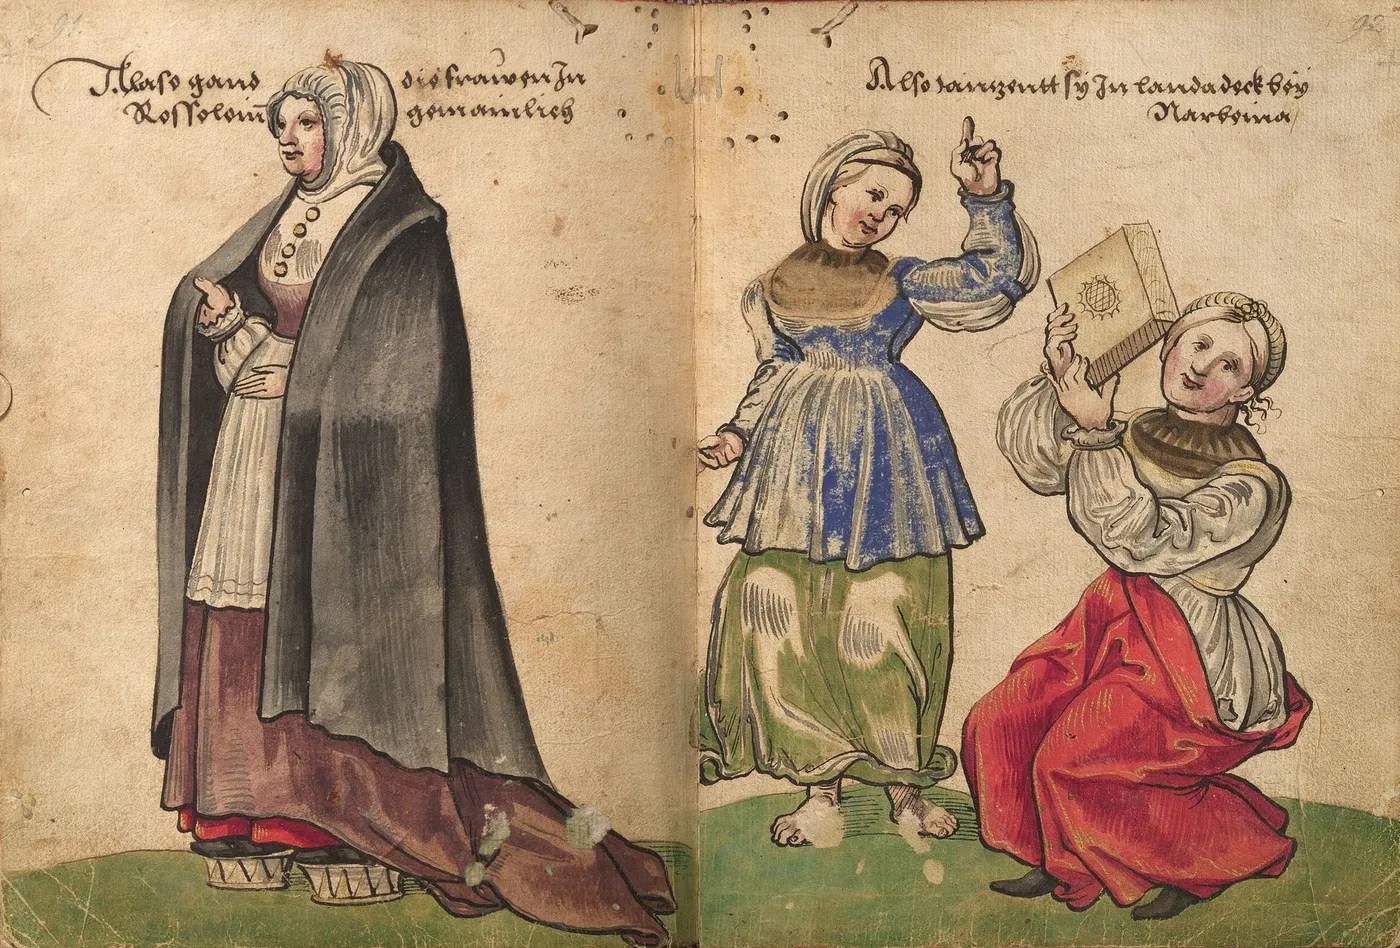 91.
Allso gand die frawen In
Rossolein gemainlich
92
Also tanzentt sy In landadeck bey
Narbeina